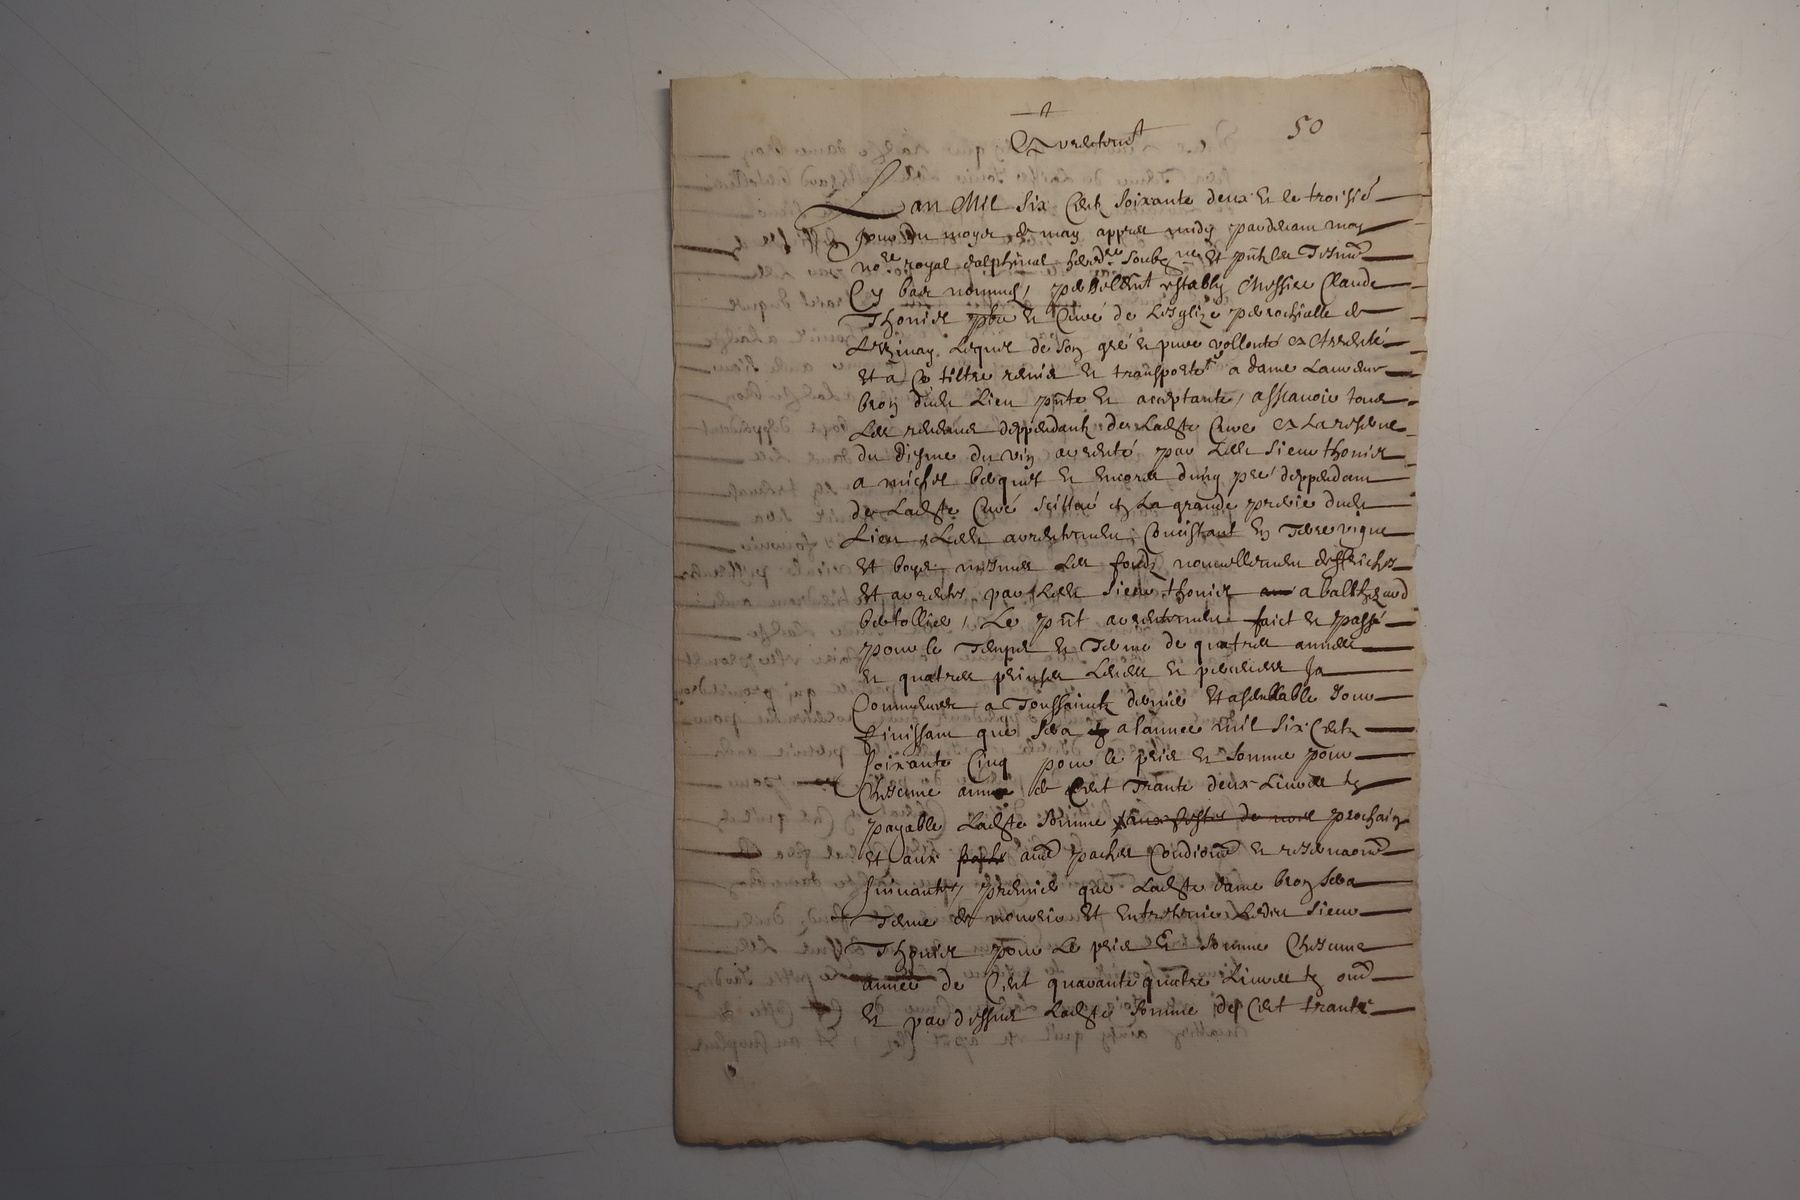 50
Arrentemt
L an Mil six Centz soixante deux Et le troisie
Jour du moys de may appres midy pardevant moy
nore royal dalphinal heredre soubzne Et pnt les Tesmo
Cy bas nommes, personellemt estably Messire Claude
Thonier pbre Et Curé de Lesglize parrochialle de
Lequel de son gré Et pure vollonté a Arrenté
Et a Ce tiltre remis Et transporte a dame Laurence
broy dudt Lieu pnte Et acceptante, assçavoir tous
Les revenus deppendantz de Ladte Cure a La reserve
du disme du vin arrenté par Ledt sieur thonier
a michel Et Encores dung pré deppendant
de Ladte Cure scittué En La grande prerie dudt
Lieu, Ledt arrentement Consistant En Terre vigne
Et boys mesmes Les fondz nouvellement deffriches
Et arrentes par Ledt sieur thonier a balthezard
Le pnt arrentement faict Et passé
pour le Temps Et Terme de quatres annees
Et quatres prinses Levees Et perceues Ja
Commences a Toussainctz dernier Et a semblable Jour
finissant que sera a lannee mil six Centz
soixante Cinq pour le prix Et somme pour
Chescune annee de Cent Trante deux Livres tz
payable Ladte somme aux festes de noel prochain
Et aux pactes Et reservaonz
suivantes, premier que Ladte dame broy sera
Tenue de nourrir Et Entretenir Ledict sieur
Thonier pour Le prix Et somme Chescune
annee de Cent quarante quatre Livres tz
Et par dessus Ladte somme de Cent trante